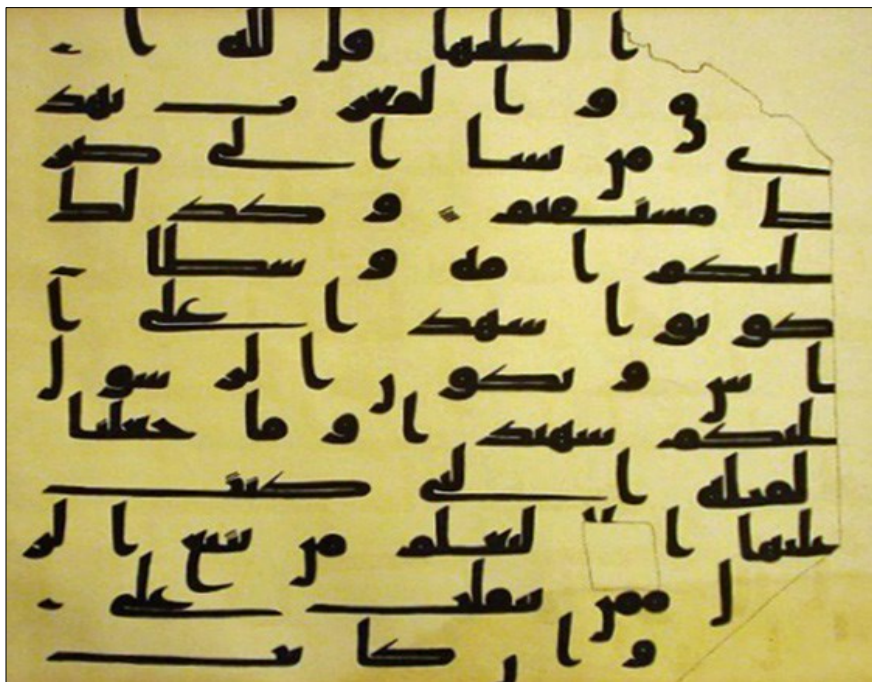 ا عليها قل لله ا
ق و ا لمغرب يهد
ى من يشا ا لى صر
ط مستقيم و كذ لك
جعلنكم ا مة و سطا لـ
تكونو ا شهد ا على ا
لنا س و يكو ن ا لر سو ل
عليكم شهيد ا و ما جعلنا
لقبلة ا لتى كنت
عليها ا لنعلم من يتبع ا لر
ل ممن ينقلب على
و ا ن كا نت